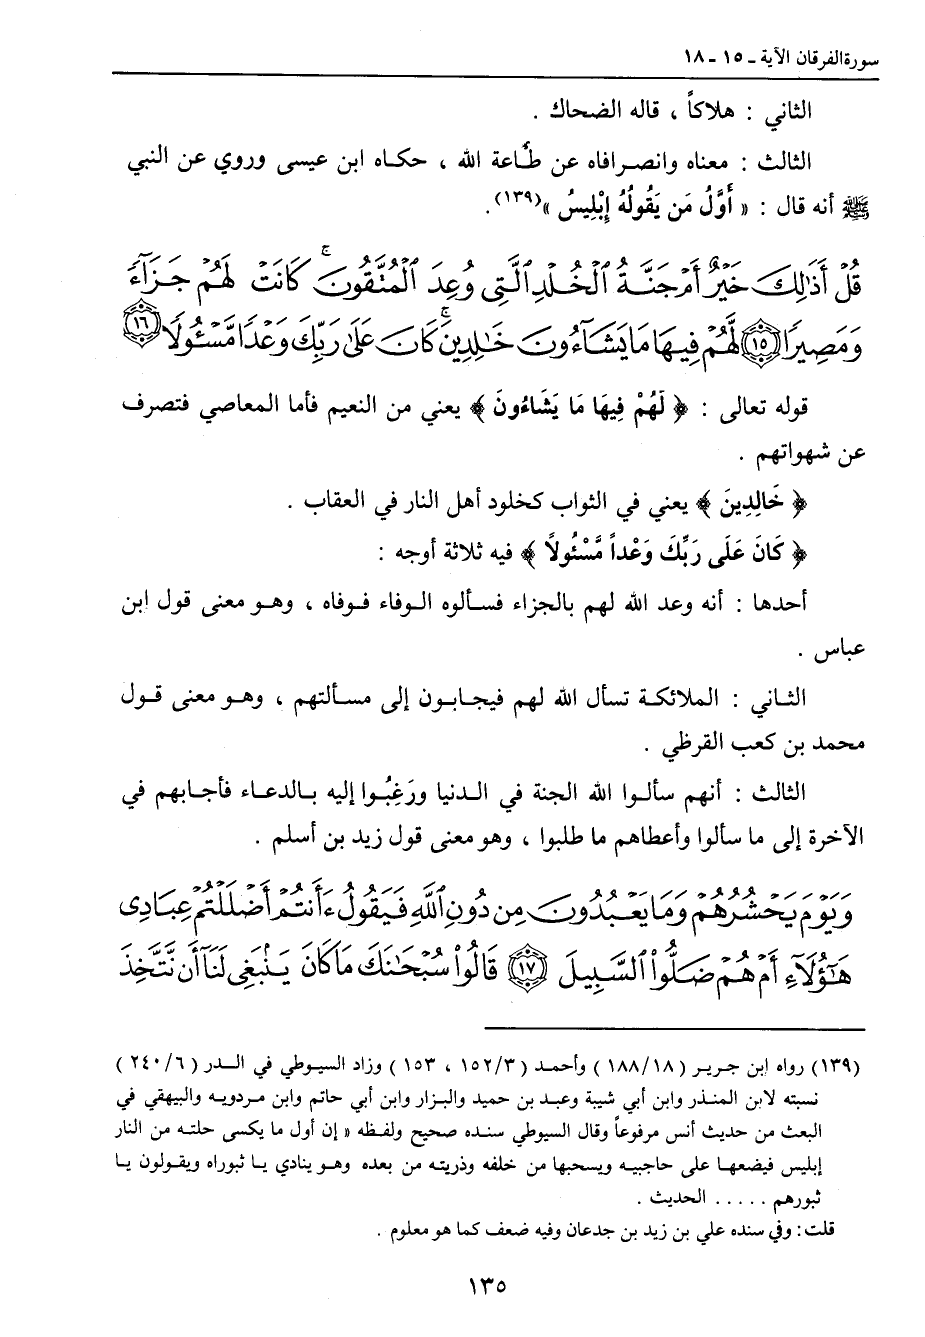 سورة الفرقان الآية ـ ١٥ ـ ١٨
الثاني : هلاكاً ، قاله الضحاك .
الثالث : معناه وانصرافاه عن طاعة الله ، حكاه ابن عيسى وروي عن النبي
ﷺ أنه قال : « أَوَّلُ مَن يَقُولُهُ إِبْلِيسُ »(١٣٩).
قُلْ أَذَٰلِكَ خَيْرٌ أَمْ جَنَّةُ ٱلْخُلْدِ ٱلَّتِى وُعِدَ ٱلْمُتَّقُونَ ۚ كَانَتْ لَهُمْ جَزَآءً
وَمَصِيرًا ﴿١٥﴾ لَّهُمْ فِيهَا مَا يَشَآءُونَ خَٰلِدِينَ ۚ كَانَ عَلَىٰ رَبِّكَ وَعْدًا مَّسْـُٔولًا ﴿١٦﴾
قوله تعالى : ﴿ لَهُمْ فِيهَا مَا يَشَاءُونَ ﴾ يعني من النعيم فأما المعاصي فتصرف
عن شهواتهم .
﴿ خَالِدِينَ ﴾ يعني في الثواب كخلود أهل النار في العقاب .
﴿ كَانَ عَلَى رَبِّكَ وَعْداً مَّسْئُولاً ﴾ فيه ثلاثة أوجه :
أحدها : أنه وعد الله لهم بالجزاء فسألوه الوفاء فوفاه ، وهو معنى قول ابن
عباس .
الثاني : الملائكة تسأل الله لهم فيجابون إلى مسألتهم ، وهو معنى قول
محمد بن كعب القرظي .
الثالث : أنهم سألوا الله الجنة في الدنيا ورَغِبُوا إليه بالدعاء فأجابهم في
الآخرة إلى ما سألوا وأعطاهم ما طلبوا ، وهو معنى قول زيد بن أسلم .
وَيَوْمَ يَحْشُرُهُمْ وَمَا يَعْبُدُونَ مِن دُونِ ٱللَّهِ فَيَقُولُ ءَأَنتُمْ أَضْلَلْتُمْ عِبَادِى
هَٰٓؤُلَآءِ أَمْ هُمْ ضَلُّوا۟ ٱلسَّبِيلَ ﴿١٧﴾ قَالُوا۟ سُبْحَٰنَكَ مَا كَانَ يَنۢبَغِى لَنَآ أَن نَّتَّخِذَ
(١٣٩) رواه ابن جرير (١٨٨/١٨) وأحمد (١٥٢/٣ ، ١٥٣) وزاد السيوطي في الدر (٢٤٠/٦)
نسبته لابن المنذر وابن أبي شيبة وعبد بن حميد والبزار وابن أبي حاتم وابن مردويه والبيهقي في
البعث من حديث أنس مرفوعاً وقال السيوطي سنده صحيح ولفظه « إن أول ما يكسى حلته من النار
إبليس فيضعها على حاجبيه ويسحبها من خلفه وذريته من بعده وهو ينادي يا ثبوراه ويقولون يا
ثبورهم ..... الحديث .
قلت : وفي سنده علي بن زيد بن جدعان وفيه ضعف كما هو معلوم .
١٣٥